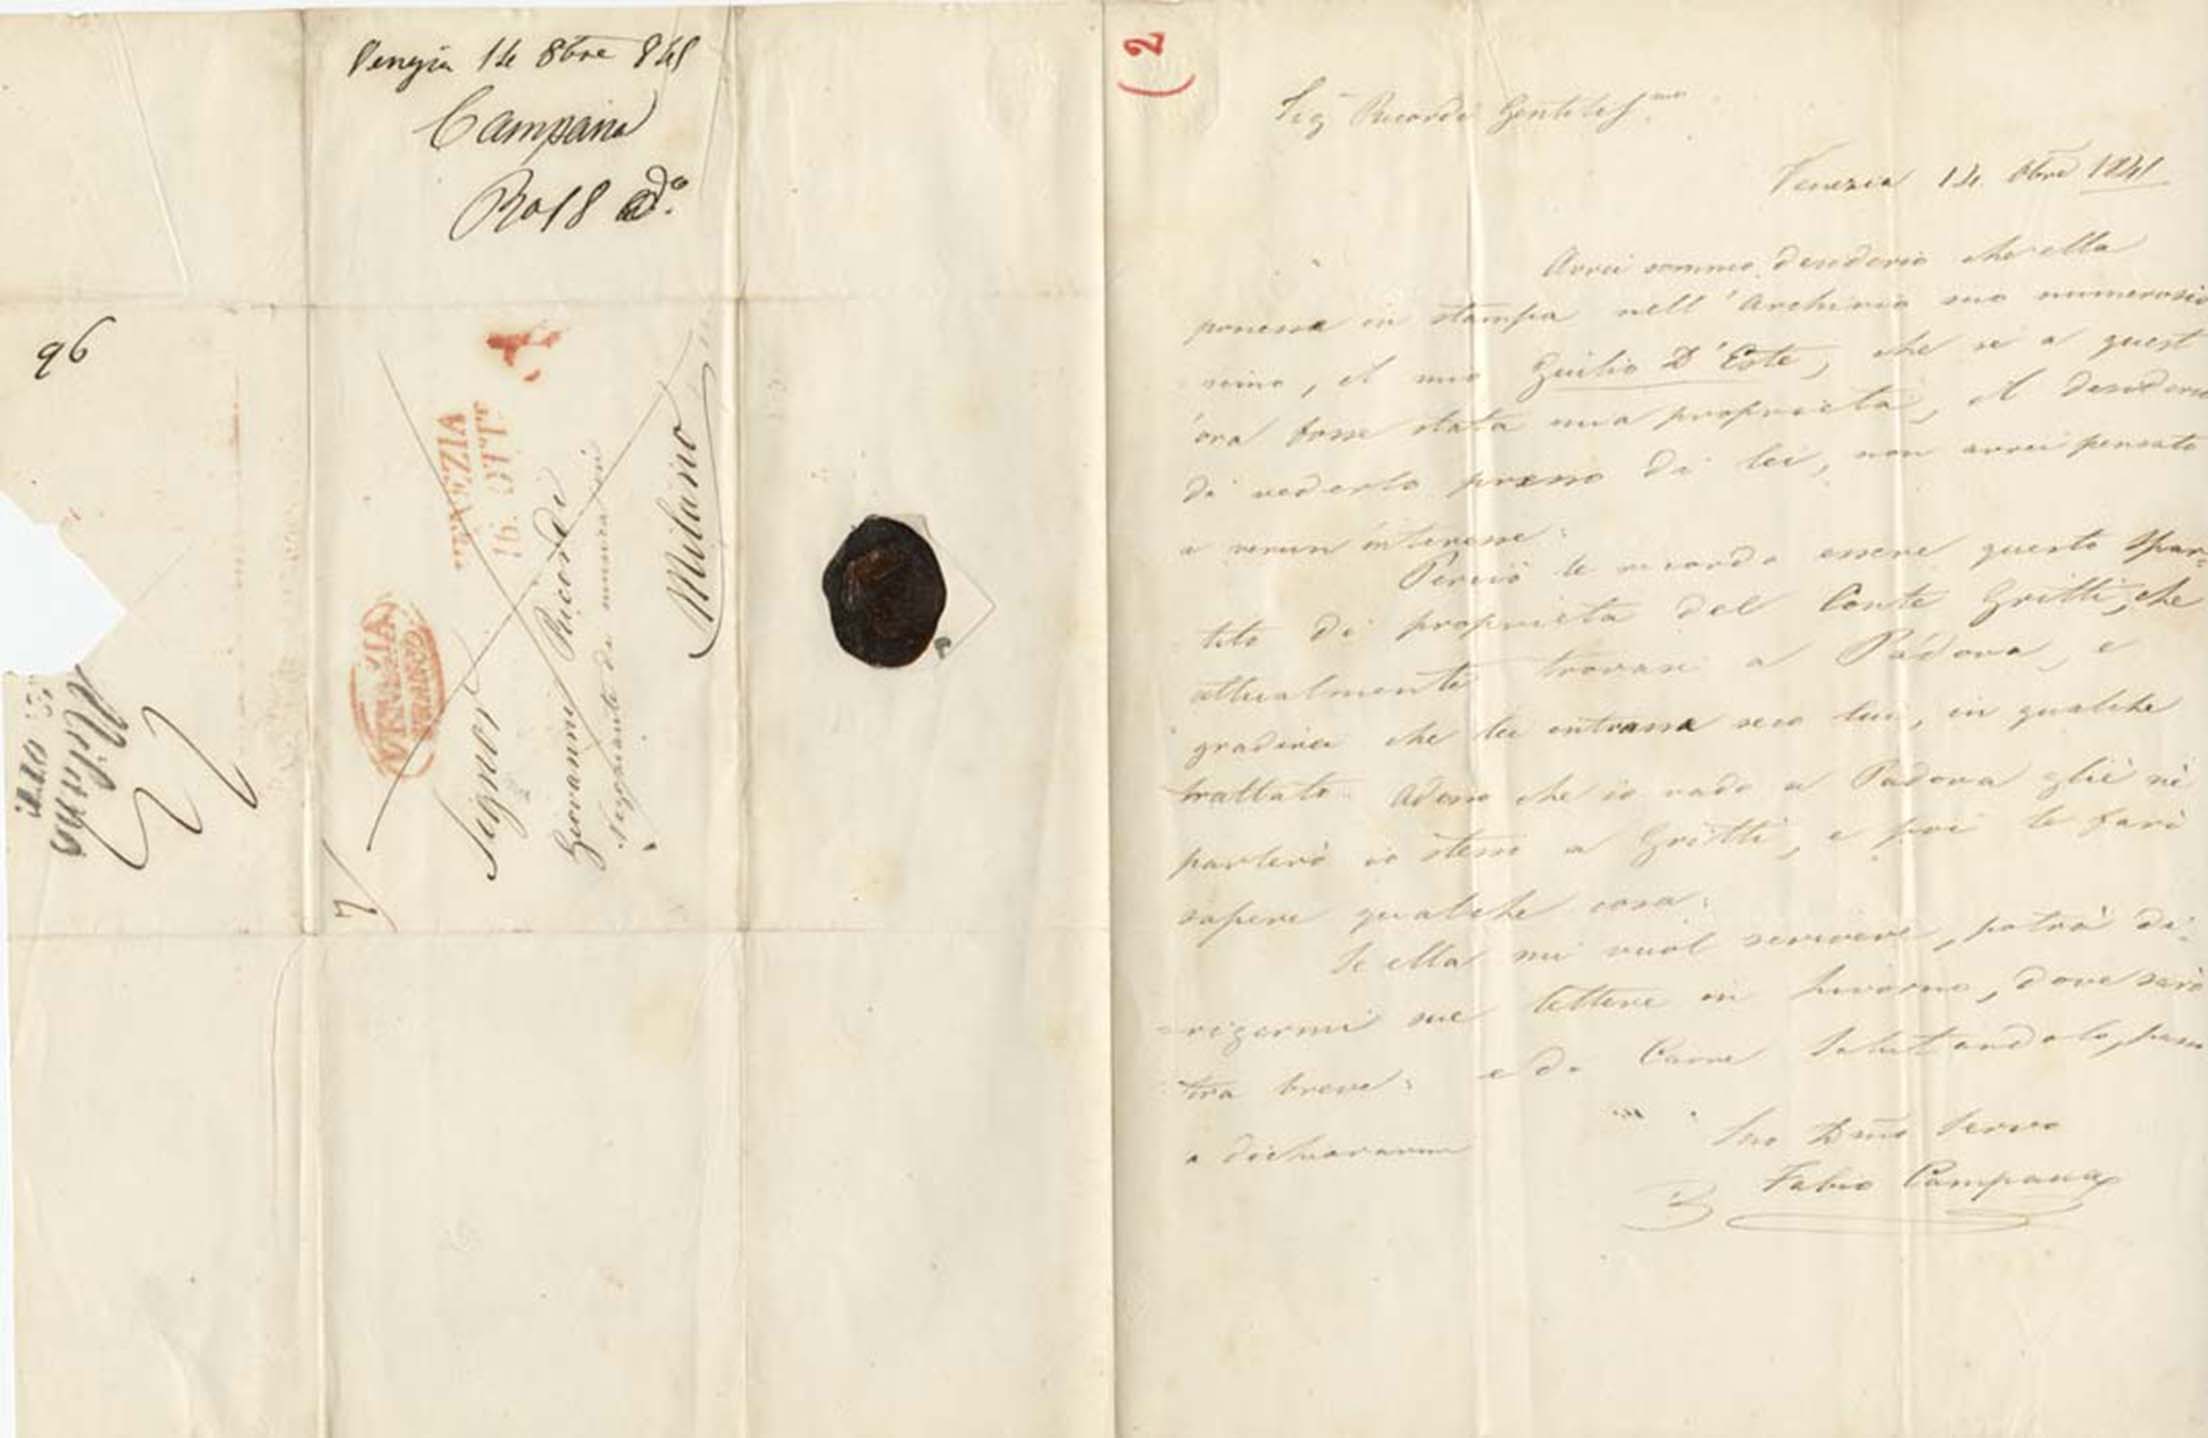 Venezia 14 8bre 841
Campana
R a 18 do.
96
VENEZIA
16. OTT.
VENEZIA
Signor
Giovanni Ricordi
Negoziante di musica
Milano
Milano
2
Sig Ricordi Gentiliss.mo
Venezia 14. 8bre 1841
Avrei sommo desiderio che ella
ponesse in stampa nell'Archivio suo numerosis
simo, il mio Giulio D'Este, che se a quest
'ora fosse stata mia proprietà, il desiderio
di vederlo presso di lei, non avrei pensato
a verun interesse:
Perciò le ricordo essere questo Spar=
tito di proprietà del Conte Gritti, che
attualmente trovasi a Padova, e
gradirei che lei entrasse seco lui, in qualche
trattato. Adesso che io vado a Padova gliè nè
parlerò io stesso a Gritti, e poi le farò
sapere qualche cosa:
Se ella mi vuol scrivere, potrà di=
=rigermi sue lettere in Livorno, dove sarò
tra breve: e da Salutandolo, passo
a dichiararmi
Suo Dmo Servo
Fabio Campana